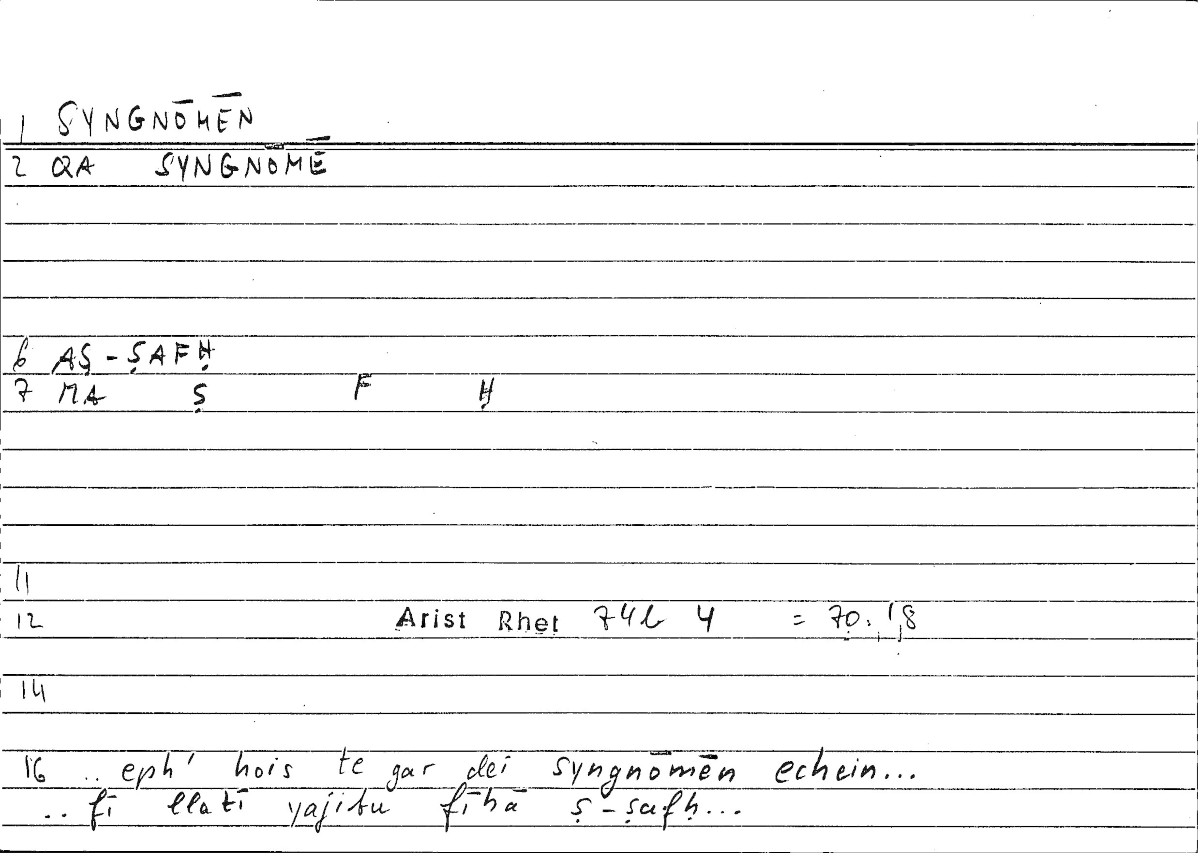 1 SYNGNŌMĒN
2 QA SYNGNŌMĒ
6 AṢ-ṢAFḤ
7 MA Ṣ F Ḥ
11
12 Arist Rhet 74b 4 = 70,18
14
16 .. eph' hois te gar dei syngnōmēn echein...
.. fī llatī yajibu fīhā ṣ-ṣafḥ...